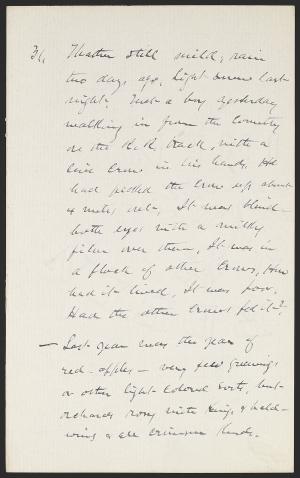 31, Weather still mild, rain
two days ago, light snow last
night, Met a boy yesterday
walking in from the country
on the R.R. track, with a
live Crow in his hands, He
had picked the Crow up about
4 miles out, It was blind -
both eyes with a milky
film over them, It was in
a flock of other Crows, How
had it lived, It was poor.
Had the other Crows fed it?
— Last year was the year of
red-apples — very few greenings
or other light colored sorts, but
orchards rosy with Kings & Bald-
wins & all crimson kinds.